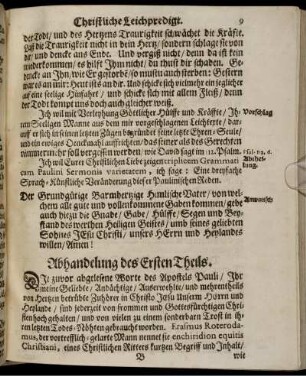 Christliche Leichpredigt. 9
der Todt/ und des Hertzens Traurigkeit schwächet die Kräfte.
Laß die Traurigkeit nicht in dein Hertz/ sondern schlage sie von
dir/ und dencke ans Ende. Und vergiß nicht/ denn da ist kein
wiederkommen/ es hilft Ihm nicht/ du thust dir schaden. Ge-
dencke an Ihn/ wie Er gestorben/ so mustu auch sterben: Gestern
war es an mir/ heut ist es an dir. Und schicke sich vielmehr ein jeglicher
auf eine selige Hinfahrt/ und schicke sich mit allem Fleiß/ denn
der Todt kompt uns doch auch gleicher weiß.
Ich will mit Verleyhung Göttlicher Hülffe und Kräfte/ Ih- Vorschlag
ren Seeligen Manne aus dem mir vorgeschlagenen Leichtexte/ dar-
auff er sich in seinen letzten Zügen begründet seine letzte Ehren-Seule/
und ein ewiges Denckmahl auffrichten/ das ferner als des Gerechten
nimmermehr soll vergessen werden/ wie David sagt im 112. Psalm.
Ich wil Eurer Christlichen Liebe zeigen triplicem Grammati-
cam Paulini Sermonis varietatem, ich sage: Eine dreyfache
Sprach-Künstliche Veränderung dieser Paulinischen Reden.
Der Grundgütige Barmhertzige Himmlische Vater/ von wel-
chem alle gute und vollenkommene Gaben kommen/ gebe
auch hiezu die Gnade/ Gabe/ Hülffe/ Segen und Bey-
stand des werthen Heiligen Geistes/ umb seines geliebten
Sohnes JEsu Christi/ unsers HErrn und Heylandes
willen/ Amen!
Abhandelung des Ersten Theils.
Die zuvor abgelesene Worte des Apostels Pauli/ Ihr
meine Geliebte/ Andächtige/ Außerwehlte/ und mehrentheils
von Hertzen betrübte Zuhörer in Christo Jesu Unserm Herrn und
Heylande/ sind jederzeit von frommen und Gottesfürchtigen Chri-
sten hoch gehalten/ und von vielen zu einem sonderbaren Trost in ih-
ren letzten Todes-Nöhten gebraucht worden. Erasmus Roteroda-
mus, der vortrefflich-gelarte Mann nennet sie enchiridion equitis
Christiani, eines Christlichen Ritters kurtzen Begriff und Inhalt/
B wie